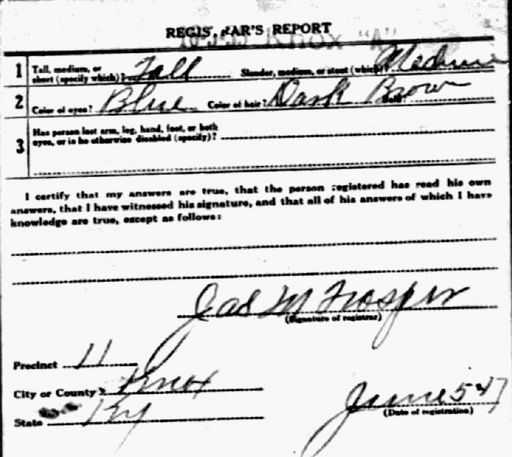 REGISTRAR'S REPORT
Knox "A"
1 Tall, medium, or short (specify which)? Tall Slender, medium, or stout (which)? Medium
2 Color of eyes? Blue Color of hair? Dark Brown Bald?
3 Has person lost arm, leg, hand, foot, or both
eyes, or is he otherwise disabled (specify)?
I certify that my answers are true, that the person registered has read his own
answers, that I have witnessed his signature, and that all of his answers of which I have
knowledge are true, except as follows:
Jas M Prosper
(Signature of registrar)
Precinct 11
City or County Knox
State Ky
June 5-17
(Date of registration)